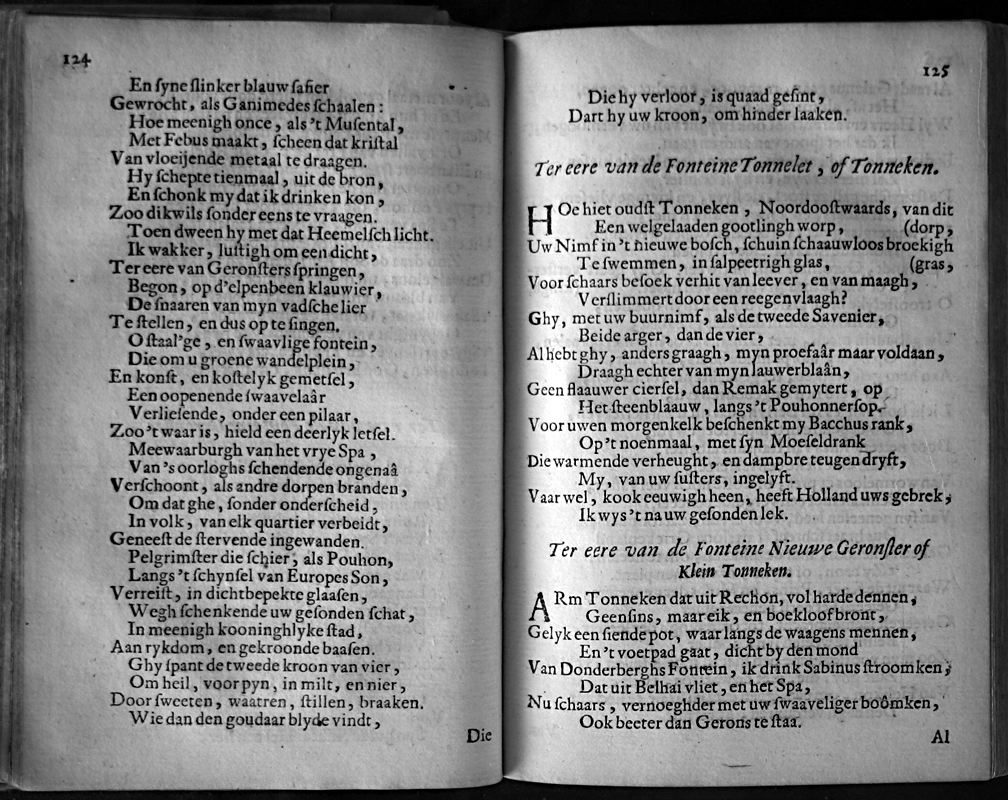 124
En ſyne ſlinker blauw ſafier
Gewrocht, als Ganimedes ſchaalen:
Hoe meenigh once, als 't Muſental,
Met Febus maakt, ſcheen dat kriſtal
Van vloeijende metaal te draagen.
Hy ſchepte tienmaal, uit de bron,
En ſchonk my dat ik drinken kon,
Zoo dikwils ſonder eens te vraagen.
Toen dween hy met dat Heemelſch licht.
Ik wakker, luſtigh om een dicht,
Ter eere van Geronſters ſpringen,
Begon, op d'elpenbeen klauwier,
De ſnaaren van myn vadſche lier
Te ſtellen, en dus op te ſingen.
O ſtaal'ge, en ſwaavlige fontein,
Die om u groene wandelplein,
En konſt, en koſtelyk gemetſel,
Een oopenende ſwaavelaâr
Verlieſende, onder een pilaar,
Zoo 't waar is, hield een deerlyk letſel.
Meewaarburgh van het vrye Spa,
Van 's oorloghs ſchendende ongenaâ
Verſchoont, als andre dorpen branden,
Om dat ghe, ſonder onderſcheid,
In volk, van elk quartier verbeidt,
Geneeſt de ſtervende ingewanden.
Pelgrimſter die ſchier, als Pouhon,
Langs 't ſchynſel van Europes Son,
Verreiſt, in dichtbepekte glaaſen,
Wegh ſchenkende uw geſonden ſchat,
In meenigh kooninghlyke ſtad,
Aan rykdom, en gekroonde baaſen.
Ghy ſpant de tweede kroon van vier,
Om heil, voor pyn, in milt, en nier,
Door ſweeten, waatren, ſtillen, braaken.
Wie dan den goudaar blyde vindt,
Die
125
Die hy verloor, is quaad geſint,
Dart hy uw kroon, om hinder laaken.
Ter eere van de Fonteine Tonnelet, of Tonneken.
HOe hiet oudſt Tonneken, Noordooſtwaards, van dit
Een welgelaaden gootlingh worp, (dorp,
Uw Nimf in 't nieuwe boſch, ſchuin ſchaauwloos broekigh
Te ſwemmen, in ſalpeetrigh glas, (gras,
Voor ſchaars beſoek verhit van leever, en van maagh,
Verſlimmert door een reegenvlaagh?
Ghy, met uw buurnimf, als de tweede Savenier,
Beide arger, dan de vier,
Al hebt ghy, anders graagh, myn proefaâr maar voldaan,
Draagh echter van myn lauwerblaân,
Geen flaauwer cierſel, dan Remak gemytert, op
Het ſteenblaauw, langs 't Pouhonnerſop.
Voor uwen morgenkelk beſchenkt my Bacchus rank,
Op 't noenmaal, met ſyn Moeſeldrank
Die warmende verheught, en dampbre teugen dryft,
My, van uw ſuſters, ingelyft.
Vaar wel, kook eeuwigh heen, heeft Holland uws gebrek,
Ik wys 't na uw geſonden lek.
Ter eere van de Fonteine Nieuwe Geronſter of
Klein Tonneken.
ARm Tonneken dat uit Rechon, vol harde dennen,
Geenſins, maar eik, en boekloof bront,
Gelyk een ſiende pot, waar langs de waagens mennen,
En 't voetpad gaat, dicht by den mond
Van Donderberghs Fontein, ik drink Sabinus ſtroomken,
Dat uit Belhai vliet, en het Spa,
Nu ſchaars, vernoeghder met uw ſwaaveliger boômken,
Ook beeter dan Gerons te ſtaa.
Al